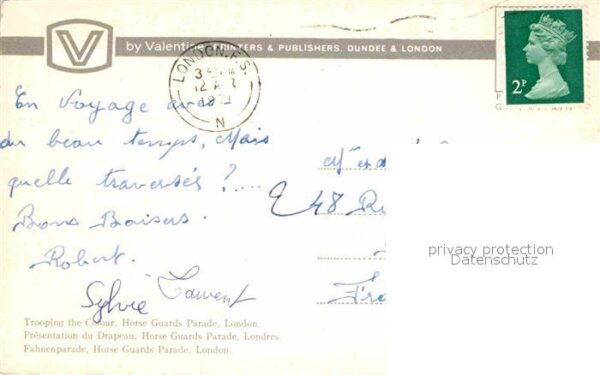 V
by Valentine PRINTERS & PUBLISHERS. DUNDEE & LONDON
LONDON. F.S.
3
12
N
2P
En Voyage avec
du beau temps, Mais
quelle traversés ?....
Bons Baisers.
Robert.
Sylvie Laurent
48
privacy protection
Datenschutz
Trooping the Colour, Horse Guards Parade, London.
Présentation du Drapeau, Horse Guards Parade, Londres.
Fahnenparade, Horse Guards Parade, London.